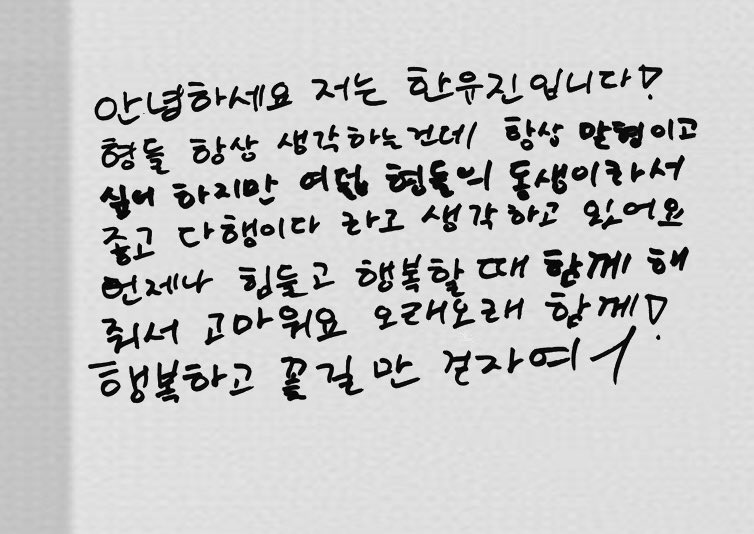 안녕하세요 저는 한유진입니다!
형들 항상 생각하는건데 항상 맏형이고
싶어 하지만 여덟 형들의 동생이라서
좋고 다행이다 라고 생각하고 있어요
언제나 힘들고 행복할 때 함께 해
줘서 고마워요 오래오래 함께!
행복하고 꽃길만 걷자여